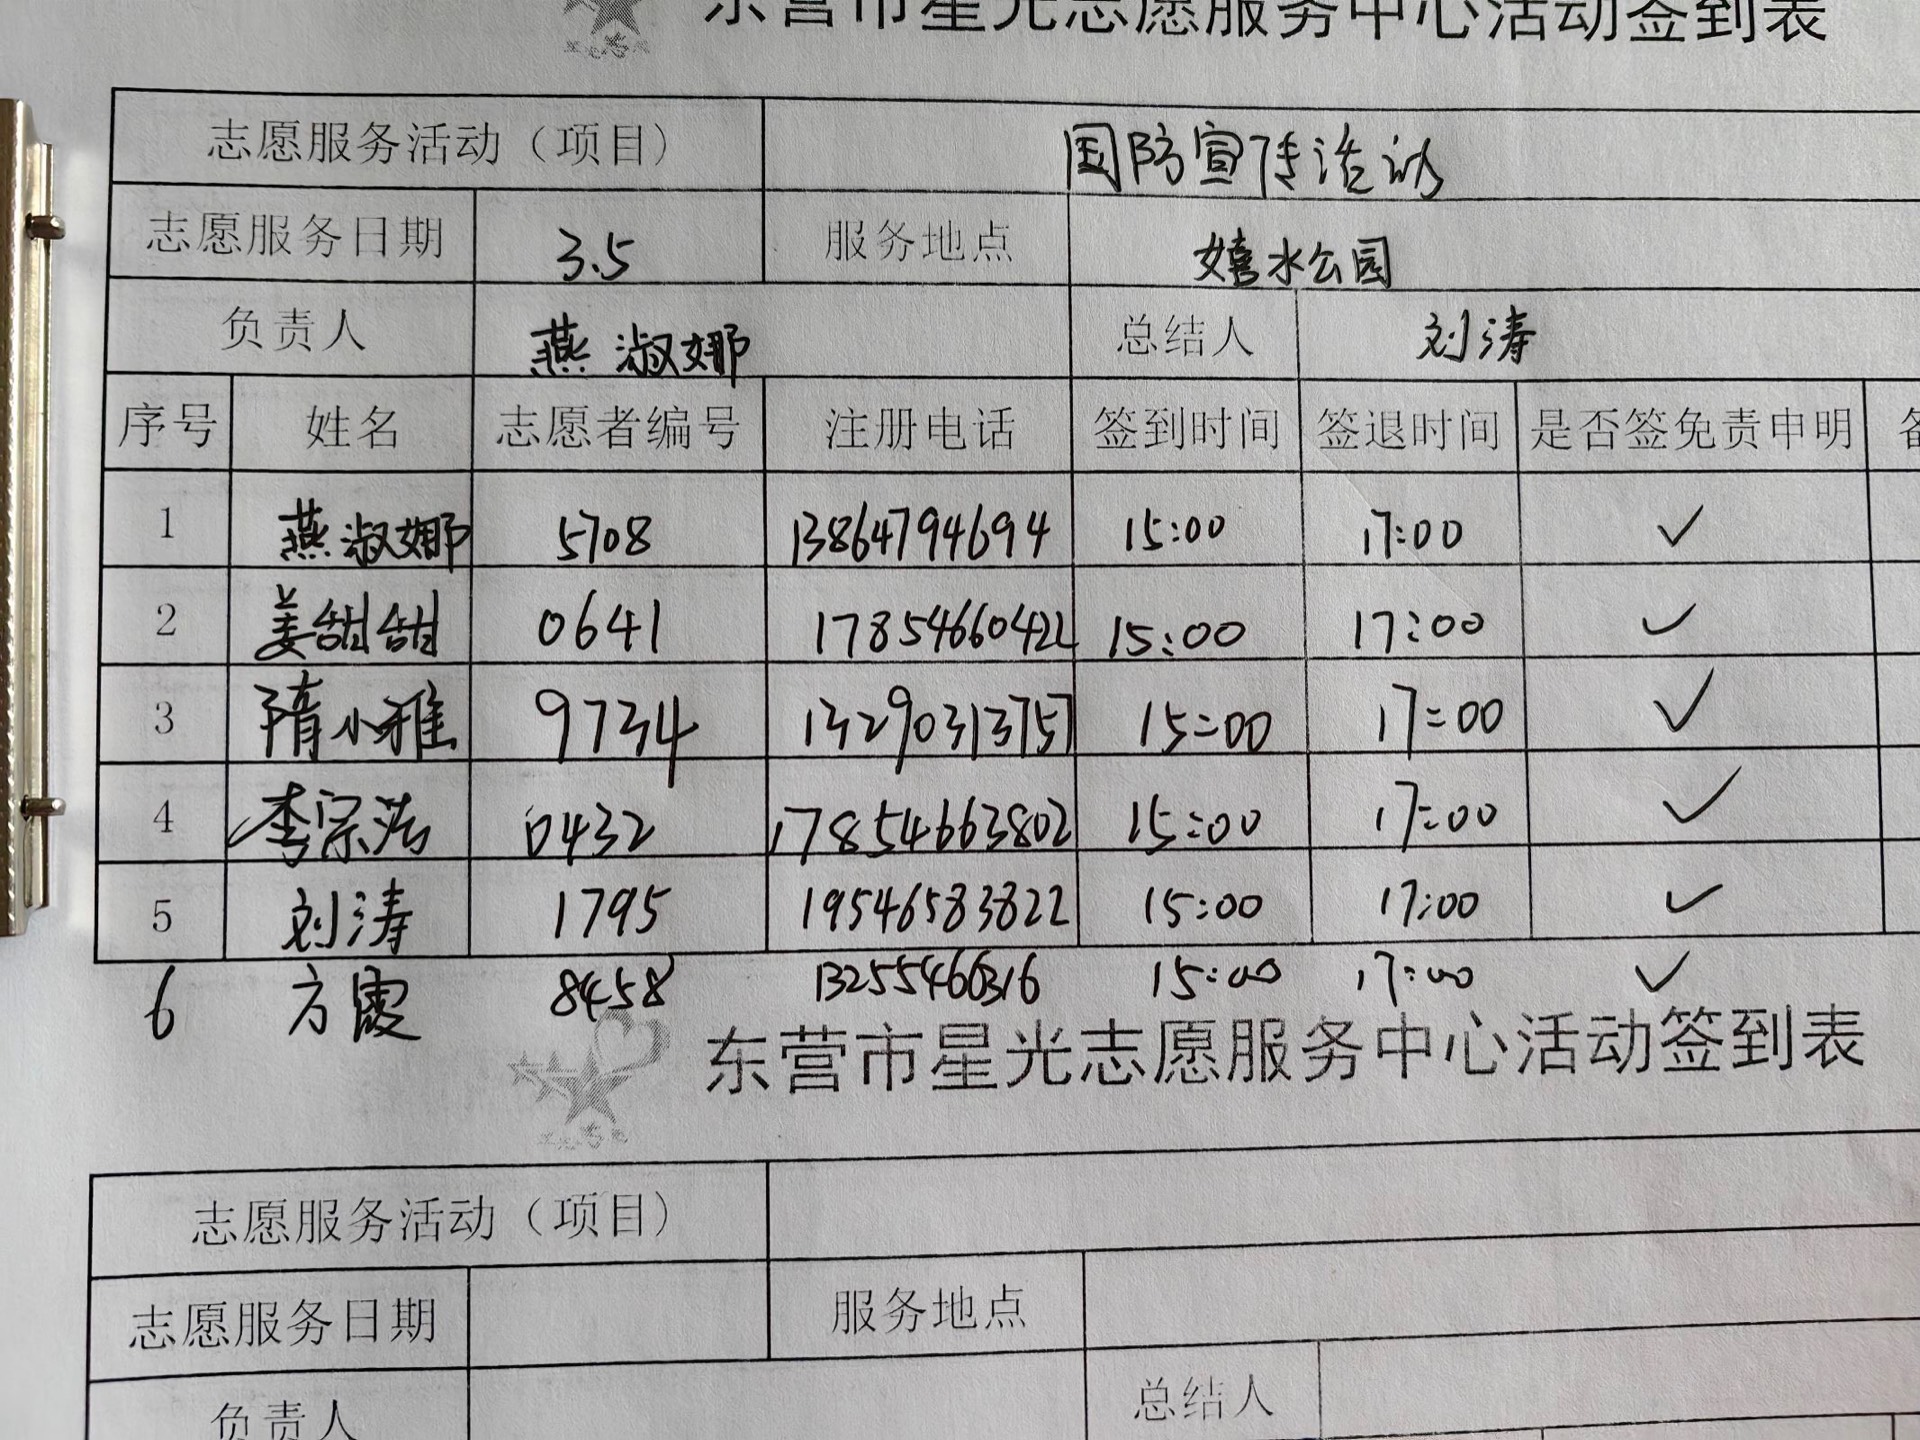 东营市星光志愿服务中心活动签到表
志愿服务活动（项目） 国防宣传活动
志愿服务日期 3.5 服务地点 嬉水公园
负责人 燕淑娜 总结人 刘涛
序号 姓名 志愿者编号 注册电话 签到时间 签退时间 是否签免责申明
1 燕淑娜 5708 13864794694 15:00 17:00 ✓
2 姜甜甜 0641 17854660422 15:00 17:00 ✓
3 隋小雅 9734 13290313757 15:00 17:00 ✓
4 李宗浩 0432 17854663802 15:00 17:00 ✓
5 刘涛 1795 19546583822 15:00 17:00 ✓
6 方霞 8458 13255466316 15:00 17:00 ✓
东营市星光志愿服务中心活动签到表
志愿服务活动（项目）
志愿服务日期 服务地点
负责人 总结人